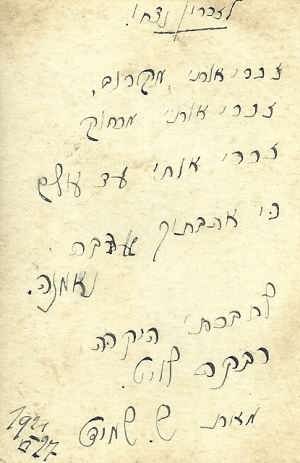 לזכרון נצחי.
זכרי אותי מקרוב,
זכרי אותי מרחוק
זכרי אותי עד עולם
כי אהבתיך אהבה
נאמנה.
לחברתי היקרה
רבקה
מאת ש. שמידט
1921